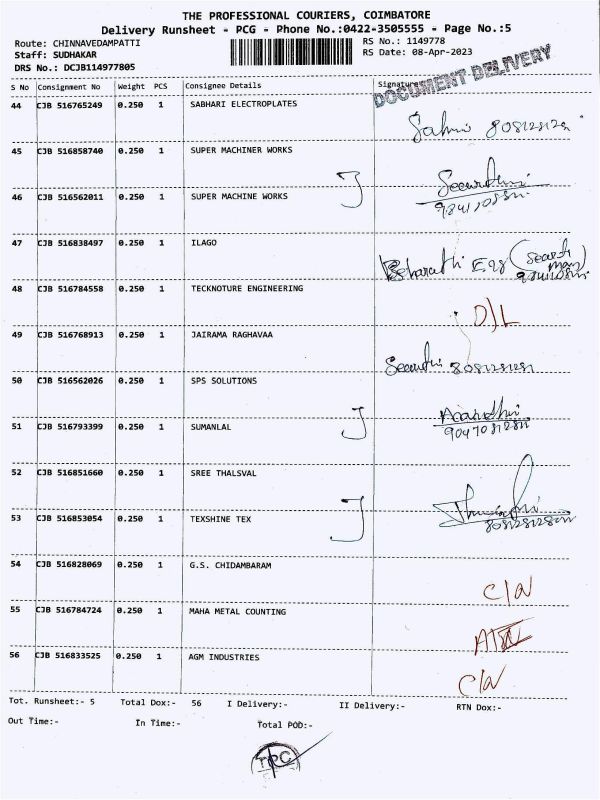 THE PROFESSIONAL COURIERS, COIMBATORE
Delivery Runsheet - PCG - Phone No.:0422-3505555 - Page No.:5
Route: CHINNAVEDAMPATTI RS No.: 1149778
Staff: SUDHAKAR RS Date: 08-Apr-2023
DRS No.: DCJB114977805
DOCUMENT DELIVERY
S No Consignment No Weight PCS Consignee Details Signature
44 CJB 516765249 0.250 1 SABHARI ELECTROPLATES
45 CJB 516858740 0.250 1 SUPER MACHINER WORKS
46 CJB 516562011 0.250 1 SUPER MACHINE WORKS
47 CJB 516838497 0.250 1 ILAGO
48 CJB 516784558 0.250 1 TECKNOTURE ENGINEERING
D/L
49 CJB 516768913 0.250 1 JAIRAMA RAGHAVAA
50 CJB 516562026 0.250 1 SPS SOLUTIONS
51 CJB 516793399 0.250 1 SUMANLAL
52 CJB 516851660 0.250 1 SREE THALSVAL
53 CJB 516853054 0.250 1 TEXSHINE TEX
54 CJB 516828069 0.250 1 G.S. CHIDAMBARAM
C/N
55 CJB 516784724 0.250 1 MAHA METAL COUNTING
56 CJB 516833525 0.250 1 AGM INDUSTRIES
C/N
Tot. Runsheet:- 5 Total Dox:- 56 I Delivery:- II Delivery:- RTN Dox:-
Out Time:- In Time:- Total POD:-
TPC